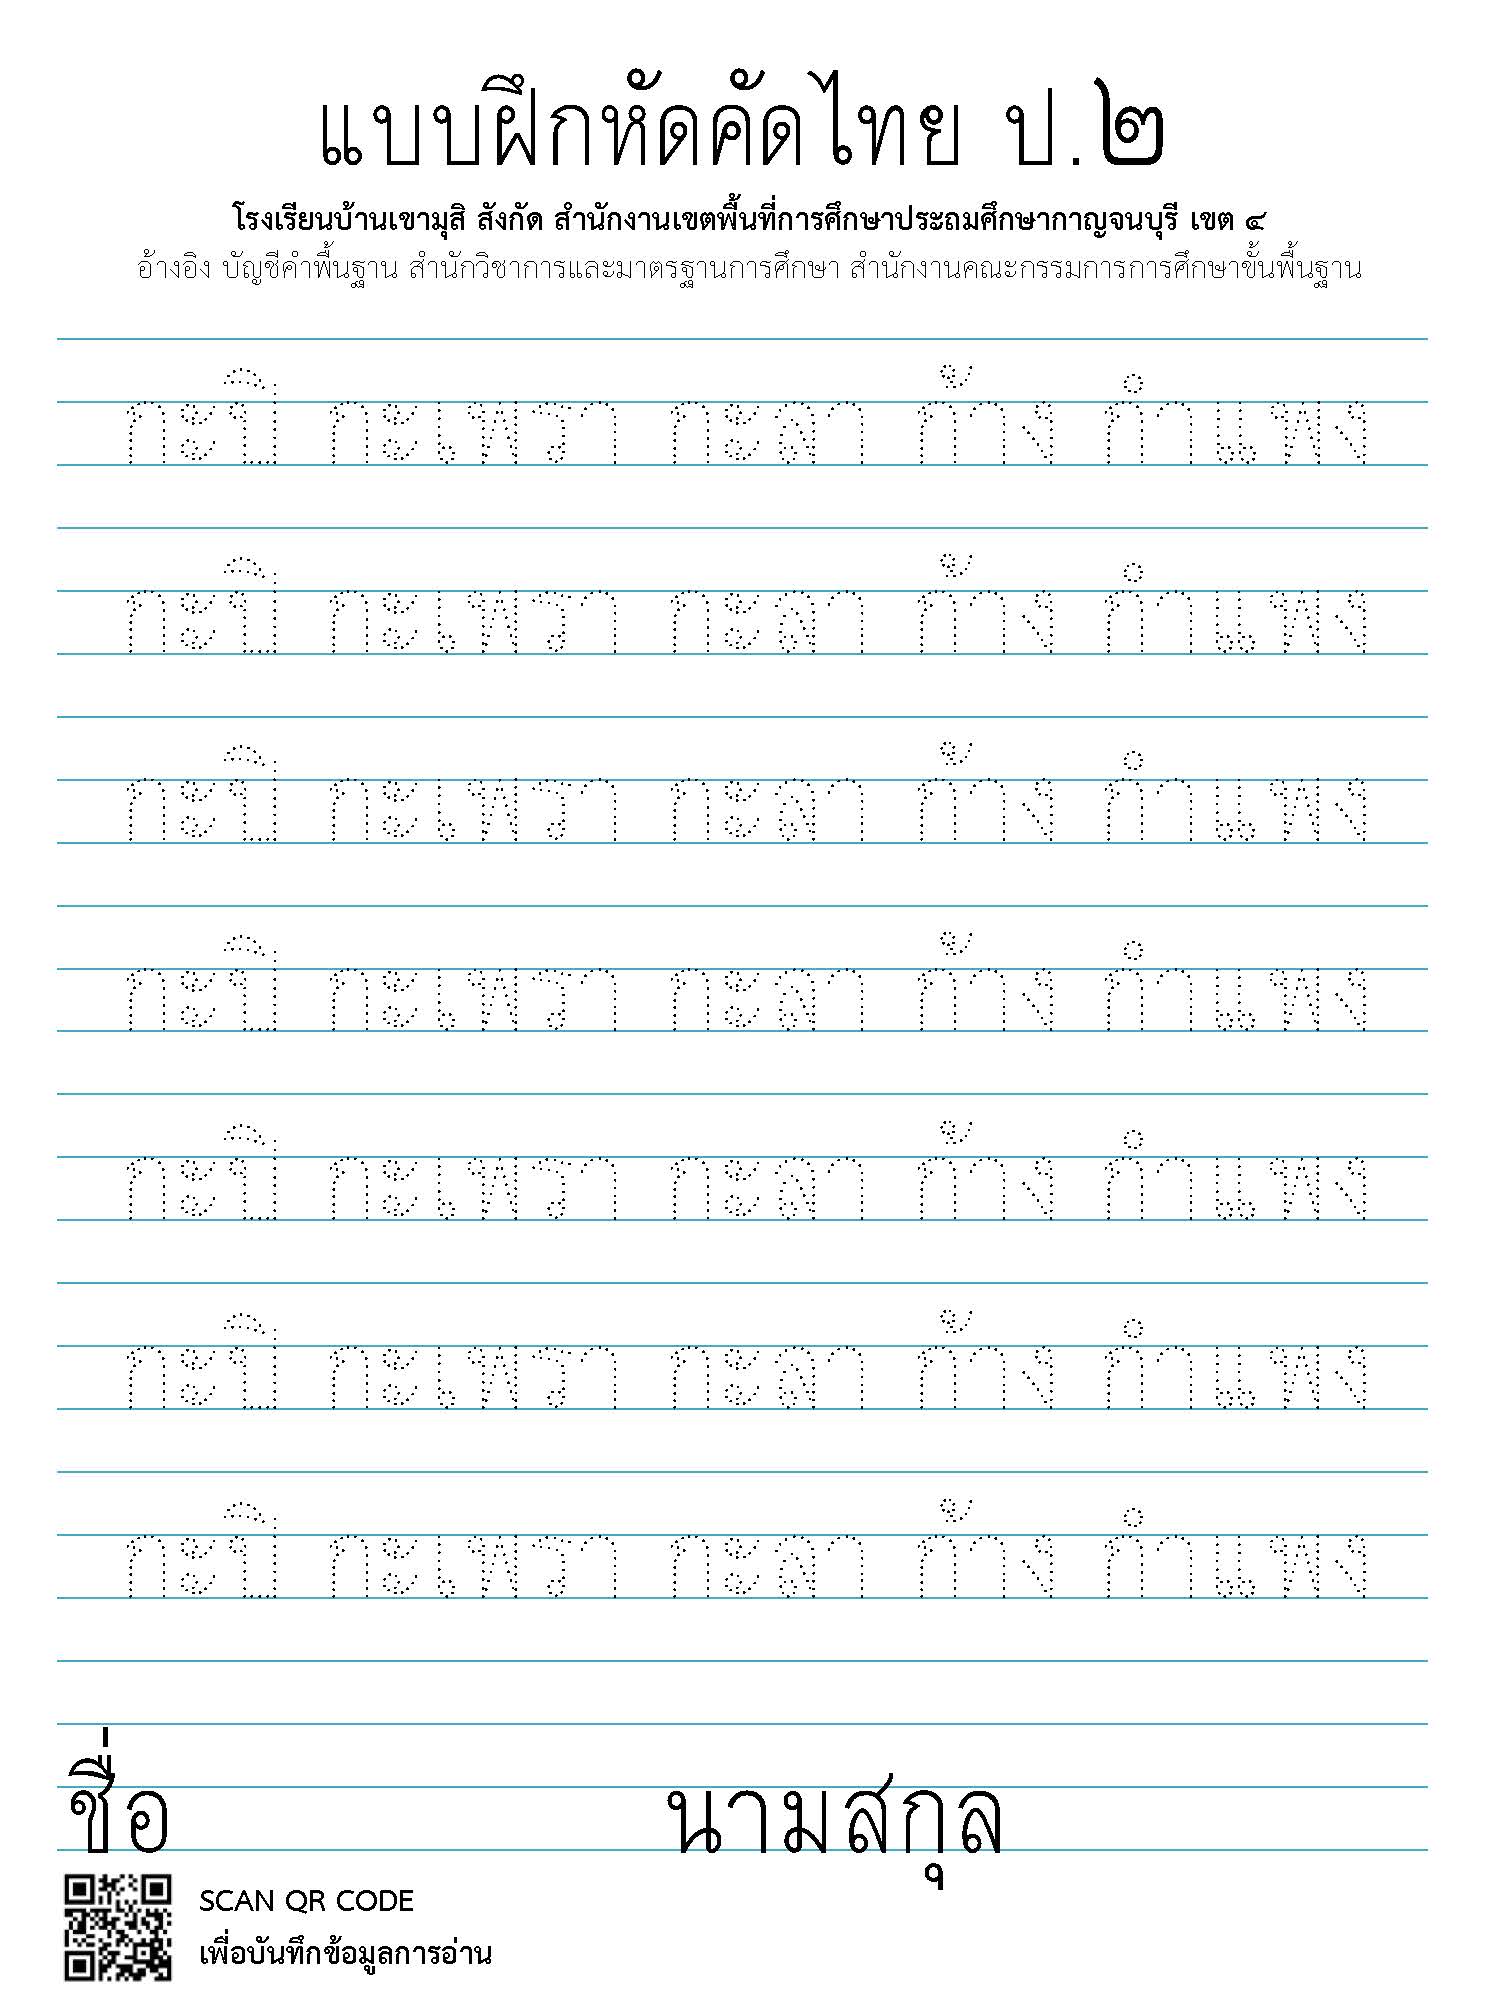 แบบฝึกหัดคัดไทย ป.๒
โรงเรียนบ้านเขามุสิ สังกัด สำนักงานเขตพื้นที่การศึกษาประถมศึกษากาญจนบุรี เขต ๔
อ้างอิง บัญชีคำพื้นฐาน สำนักวิชาการและมาตรฐานการศึกษา สำนักงานคณะกรรมการการศึกษาขั้นพื้นฐาน
กะปิ กะเพรา กะลา ก้าง กำแพง
กะปิ กะเพรา กะลา ก้าง กำแพง
กะปิ กะเพรา กะลา ก้าง กำแพง
กะปิ กะเพรา กะลา ก้าง กำแพง
กะปิ กะเพรา กะลา ก้าง กำแพง
กะปิ กะเพรา กะลา ก้าง กำแพง
กะปิ กะเพรา กะลา ก้าง กำแพง
ชื่อ นามสกุล
SCAN QR CODE
เพื่อบันทึกข้อมูลการอ่าน